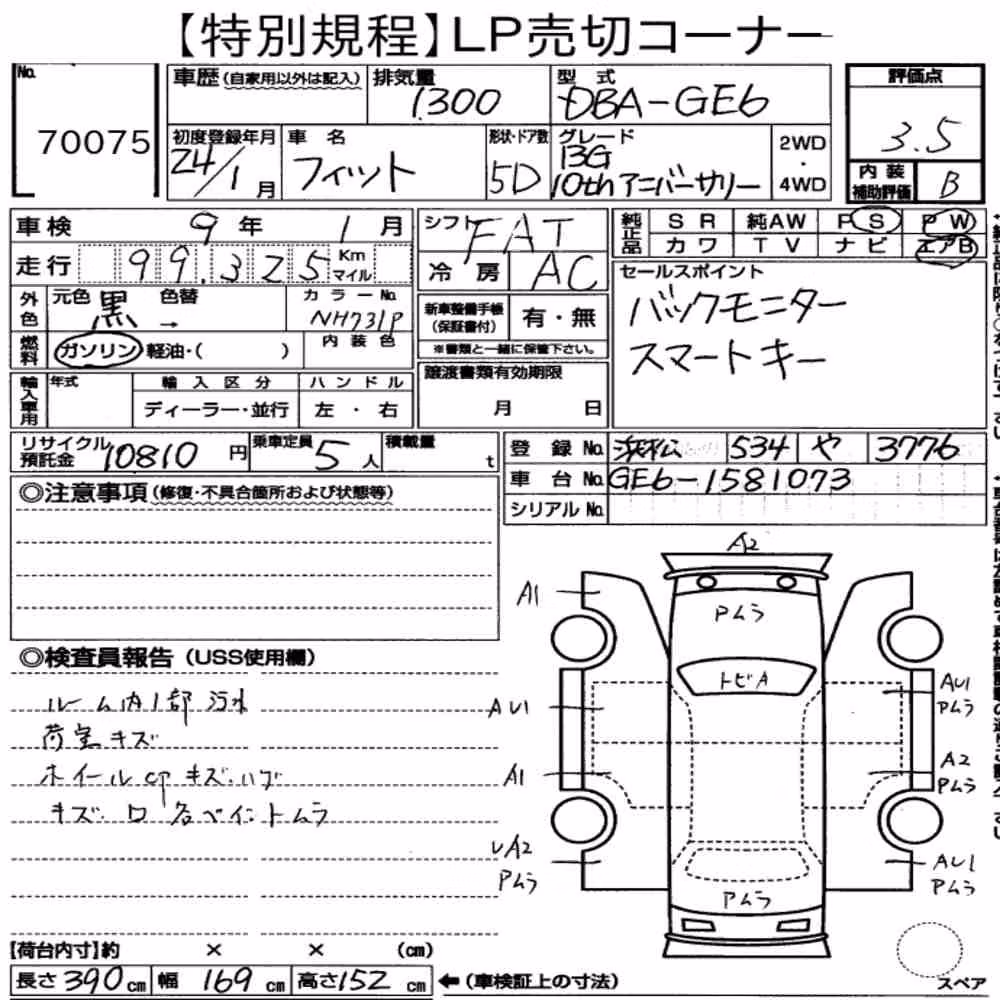 【特別規程】LP売切コーナー
No. 70075
車歴(自家用以外は記入)
排気量 1300
型式 DBA-GE6
評価点 3.5
初度登録年月 24/1月
車名 フィット
形状・ドア数 5D
グレード 13G 10thアニバーサリー
2WD・4WD
内装補助評価 B
車検 9年 1月
走行 99.325 Km マイル
シフト FAT
冷房 AC
純正品 SR 純AW PS PW
カワ TV ナビ エアB
外色 元色 黒 色替 →
カラーNo. NH731P
燃料 ガソリン 軽油・( )
内装色
新車整備手帳(保証書付) 有・無
※書類と一緒に保管下さい。
セールスポイント
バックモニター
スマートキー
輸入車用 年式 輸入区分 ハンドル
ディーラー・並行 左・右
譲渡書類有効期限
月 日
リサイクル預託金 10810円
乗車定員 5人
積載量 t
登録No. 浜松 534 や 3776
車台No. GE6-1581073
シリアルNo.
◎注意事項(修復・不具合箇所および状態等)
◎検査員報告(USS使用欄)
ルーム内1部汚れ
荷室キズ
ホイールcpキズ・ハゲ
キズ・ロ 各ペイントムラ
A2
A1
Pムラ
トビA
AU1
AU1
Pムラ
A1
A2
Pムラ
A2
Pムラ
AU1
Pムラ
Pムラ
スペア
【荷台内寸】約 × × (cm)
長さ390cm 幅169cm 高さ152cm ←(車検証上の寸法)